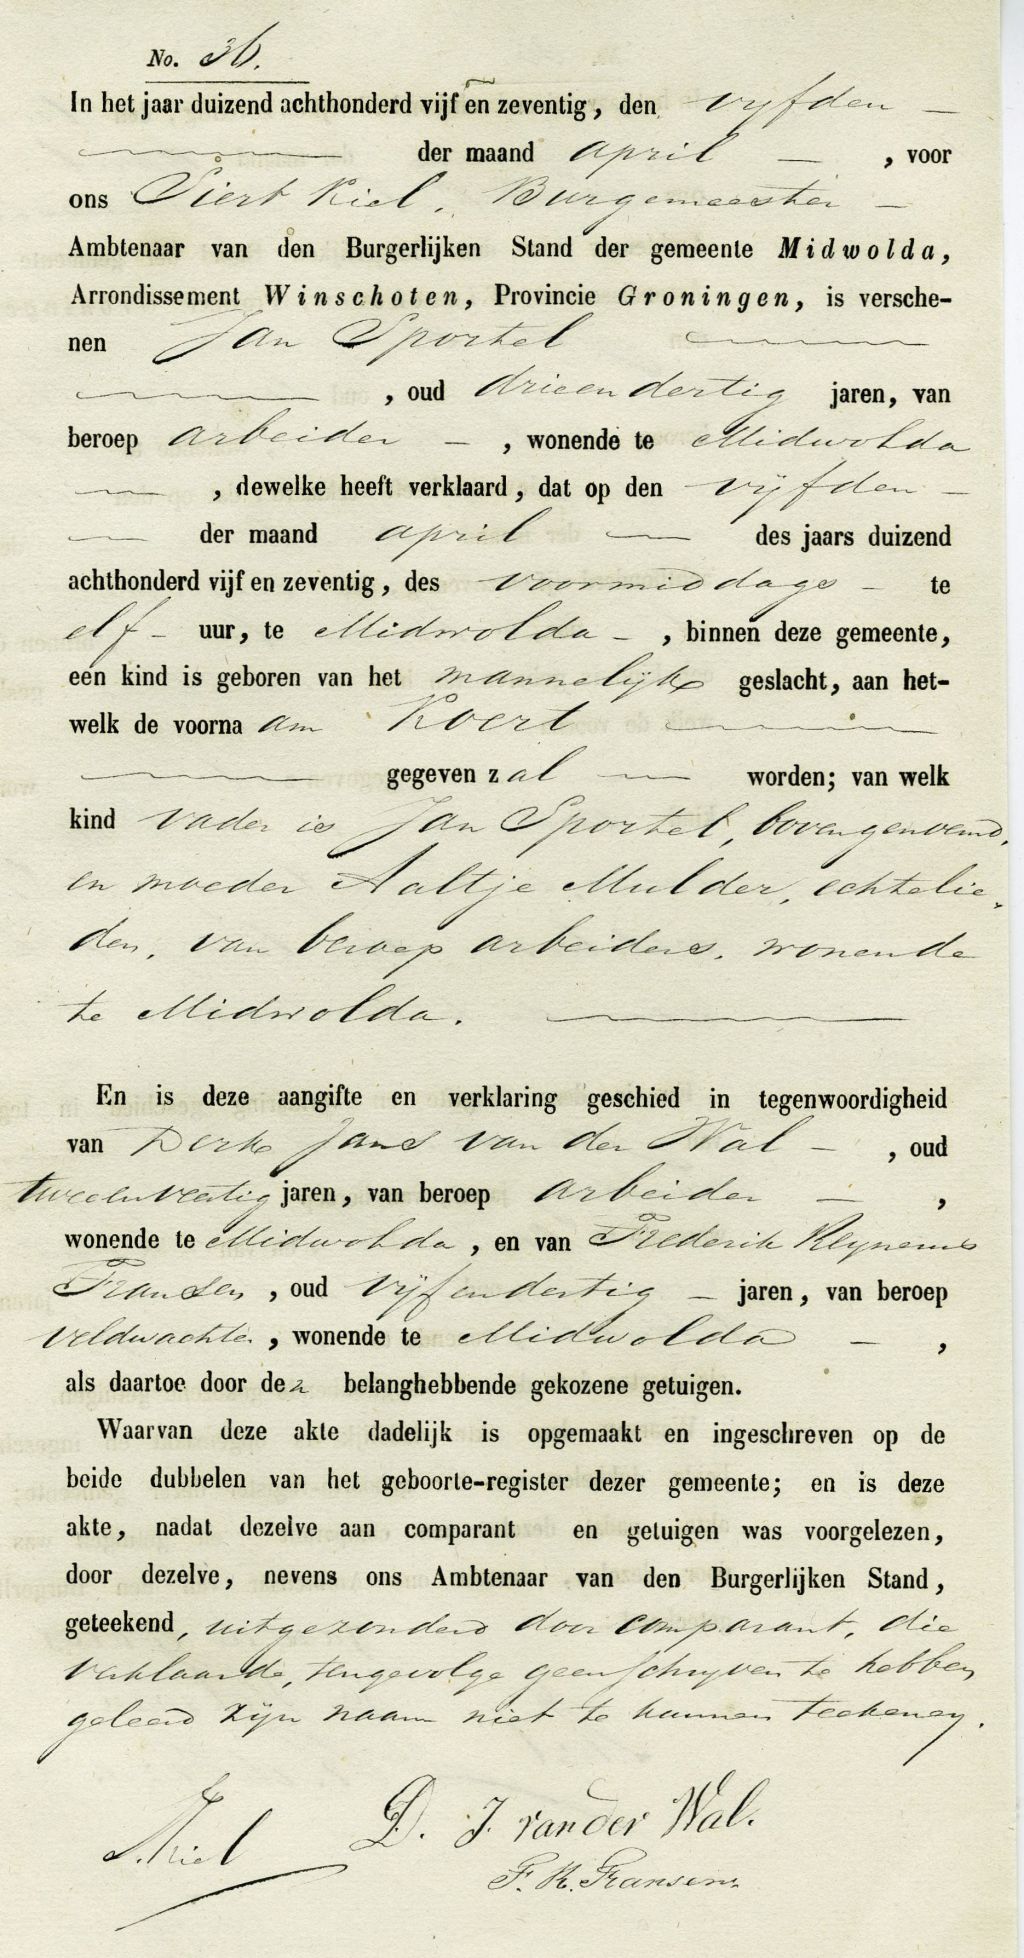 No. 36.
In het jaar duizend achthonderd vijf en zeventig, den vijfden —
der maand april — , voor
ons Siert Kiel, Burgemeester —
Ambtenaar van den Burgerlijken Stand der gemeente Midwolda,
Arrondissement Winschoten, Provincie Groningen, is versche-
nen Jan Sportel
, oud drieendertig jaren, van
beroep arbeider — , wonende te Midwolda
— , dewelke heeft verklaard, dat op den vijfden —
— der maand april — des jaars duizend
achthonderd vijf en zeventig, des voormiddags — te
elf — uur, te Midwolda — , binnen deze gemeente,
een kind is geboren van het mannelijke geslacht, aan het-
welk de voorna am Koert
gegeven zal — worden; van welk
kind vader is Jan Sportel, bovengenoemd,
en moeder Aaltje Mulder, echtelie-
den, van beroep arbeiders, wonende
te Midwolda.
En is deze aangifte en verklaring geschied in tegenwoordigheid
van Derk Jans van der Wal — , oud
tweeenveertig jaren, van beroep arbeider — ,
wonende te Midwolda, en van Frederik Reijnems
Fransen, oud vijfendertig — jaren, van beroep
veldwachter, wonende te Midwolda — ,
als daartoe door den belanghebbende gekozene getuigen.
Waarvan deze akte dadelijk is opgemaakt en ingeschreven op de
beide dubbelen van het geboorte-register dezer gemeente; en is deze
akte, nadat dezelve aan comparant en getuigen was voorgelezen,
door dezelve, nevens ons Ambtenaar van den Burgerlijken Stand,
geteekend, uitgezonderd door comparant, die
verklaarde, tengevolge geen schrijven te hebben
geleerd zijn naam niet te kunnen teekenen.
S. Kiel D. J. van der Wal.
F. R. Fransens